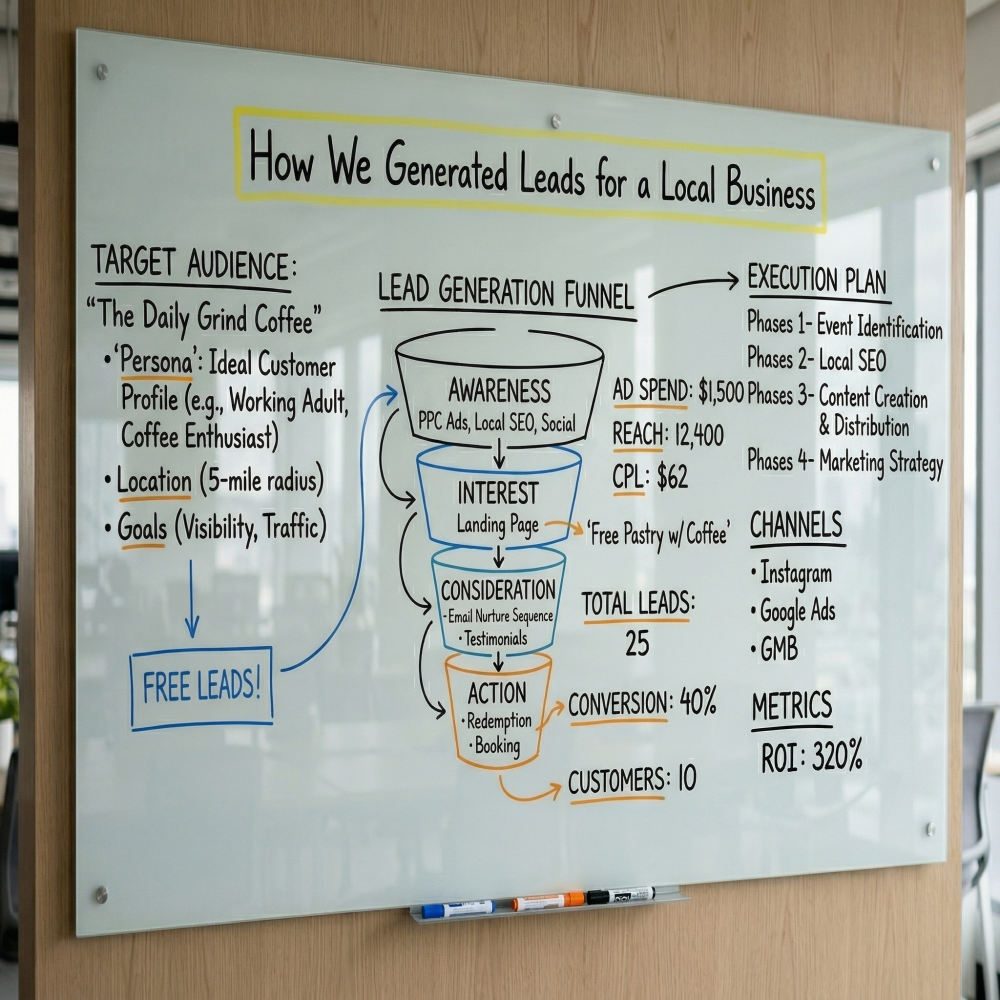 How We Generated Leads for a Local Business
TARGET AUDIENCE:
“The Daily Grind Coffee”
• ‘Persona’: Ideal Customer
Profile (e.g., Working Adult,
Coffee Enthusiast)
• Location (5-mile radius)
• Goals (Visibility, Traffic)
FREE LEADS!
LEAD GENERATION FUNNEL
AWARENESS
PPC Ads, Local SEO, Social
INTEREST
Landing Page
‘Free Pastry w/ Coffee’
CONSIDERATION
- Email Nurture Sequence
• Testimonials
ACTION
• Redemption
• Booking
AD SPEND: $1,500
REACH: 12,400
CPL: $62
TOTAL LEADS:
25
CONVERSION: 40%
CUSTOMERS: 10
EXECUTION PLAN
Phases 1- Event Identification
Phases 2- Local SEO
Phases 3- Content Creation
& Distribution
Phases 4- Marketing Strategy
CHANNELS
• Instagram
• Google Ads
• GMB
METRICS
ROI: 320%